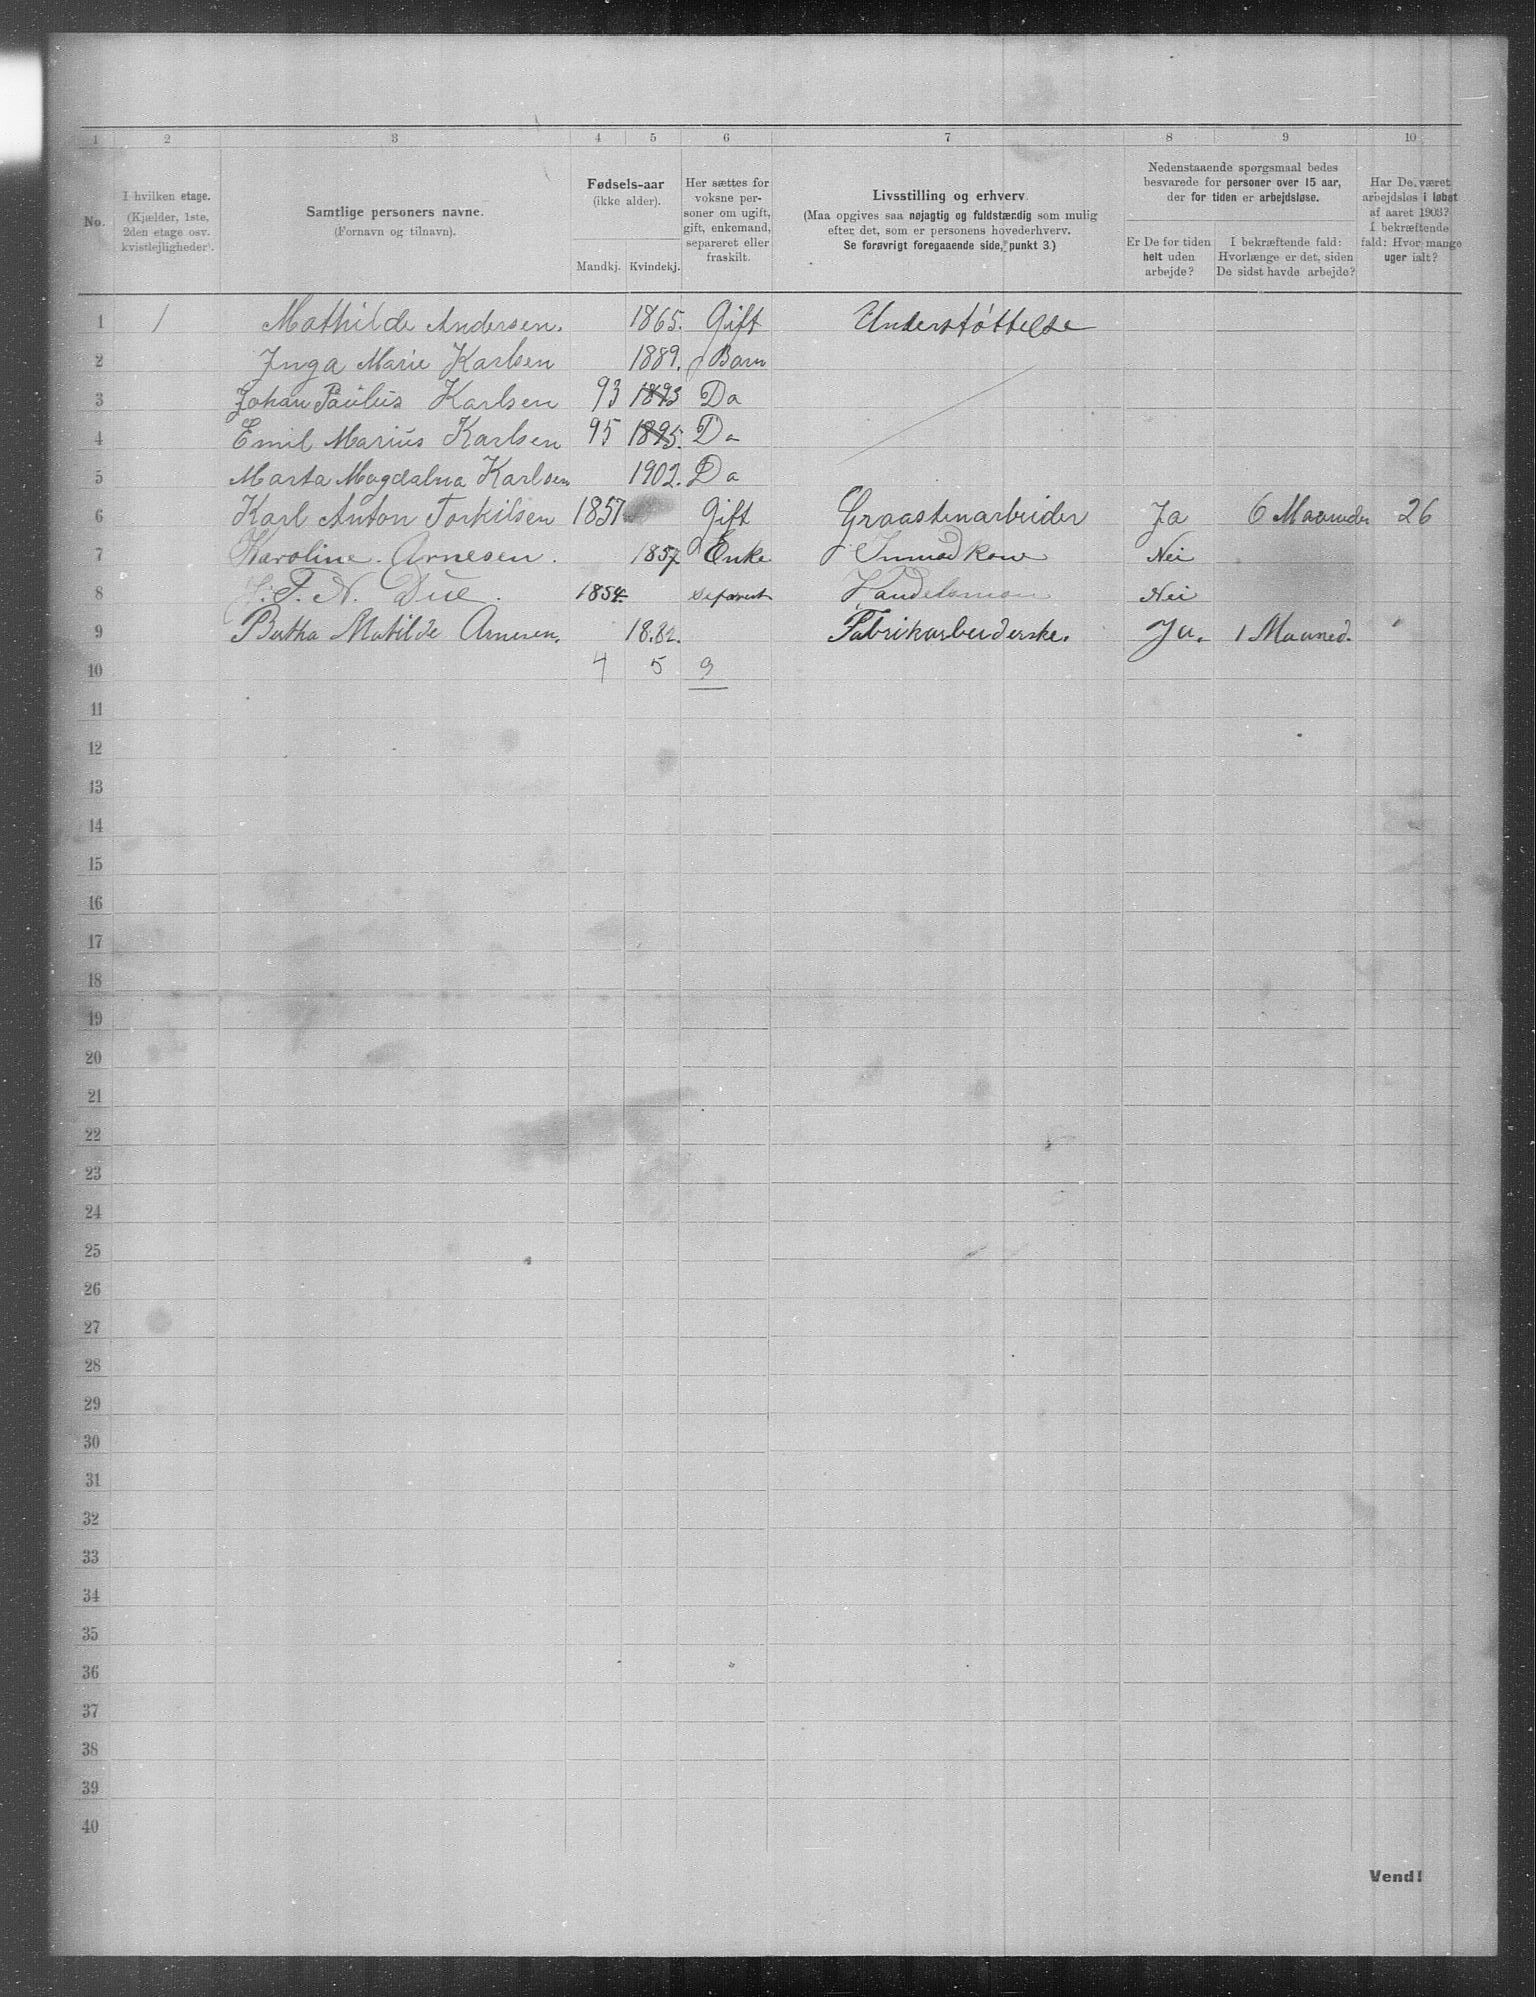 1 2 3 4 5 6 7 8 9 10
No.
I hvilken etage.
(Kjælder, 1ste,
2den etage osv.
kvistlejligheder).
Samtlige personers navne.
(Fornavn og tilnavn).
Fødsels-aar
(ikke alder).
Mandkj. Kvindekj.
Her sættes for
voksne per-
soner om ugift,
gift, enkemand,
separeret eller
fraskilt.
Livsstilling og erhverv.
(Maa opgives saa nøjagtig og fuldstændig som mulig
efter det, som er personens hovederhverv.
Se forøvrigt foregaaende side, punkt 3.)
Nedenstaaende spørgsmaal bedes
besvarede for personer over 15 aar,
der for tiden er arbejdsløse.
Er De for tiden
helt uden
arbejde?
I bekræftende fald:
Hvorlænge er det, siden
De sidst havde arbejde?
Har De været
arbejdsløs i løbet
af aaret 1903?
I bekræftende
fald: Hvor mange
uger ialt?
1 1 Mathilde Andersen. 1865. Gift Understøttelse
2 Inga Marie Karlsen 1889. Barn
3 Johan Paulus Karlsen 93 1893 Do
4 Emil Marius Karlsen 95 1895. Do
5 Marta Magdalna Karlsen 1902. Do
6 Karl Anton Torkilsen 1857 Gift Graastenarbeider Ja 6 Maaneder 26
7 Karoline Arnesen. 1857 Enke Nei
8 T. N. Due. 1854. separert Handelsman Nei
9 Bertha Matilde Arnesen. 18.82. Fabrikarbeiderske. Ja. 1 Maaned.
10 4 5 9
11
12
13
14
15
16
17
18
19
20
21
22
23
24
25
26
27
28
29
30
31
32
33
34
35
36
37
38
39
40
Vend!